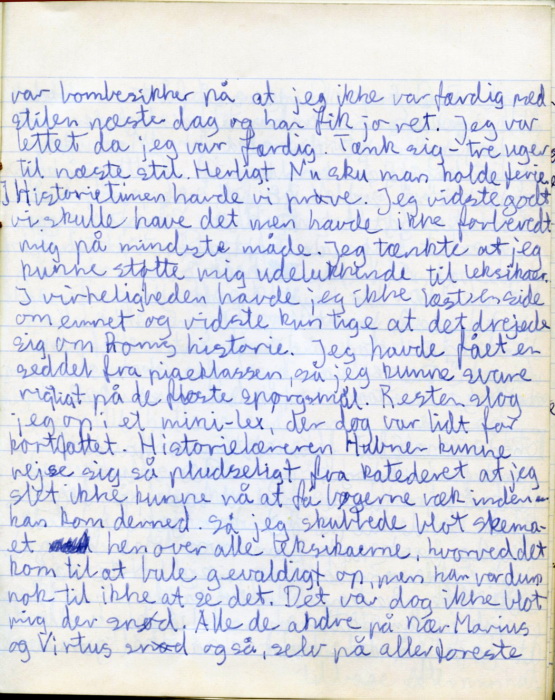 var bombesikker på at jeg ikke var færdig med
stilen næste dag og han fik jo ret. Jeg var
lettet da jeg var færdig. Tænk sig - tre uger
til næste stil. Herligt Nu sku man holde ferie
I Historietimen havde vi prøve. Jeg vidste godt
vi skulle have det men havde ikke forberedt
mig på mindste måde. Jeg tænkte at jeg
kunne støtte mig udelukkende til leksikaer.
I virkeligheden havde jeg ikke læst en side
om emnet og vidste kun lige at det drejede
sig om Roms historie. Jeg havde fået en
seddel fra pigeklassen, så jeg kunne svare
rigtigt på de fleste spørgsmål. Resten slog
jeg op i et mini-lex, der dog var lidt for
kortfattet. Historielæreren Hübner kunne
rejse sig så pludseligt fra katederet at jeg
slet ikke kunne nå at få bøgerne væk inden
han kom derned. Så jeg skubbede blot skema-
et hen over alle leksikaerne, hvorved det
kom til at bule gevaldigt op, men han var dum
nok til ikke at se det. Det var dog ikke blot
mig der snød. Alle de andre på nær Marius
og Virtus snød også, selv på allerforeste